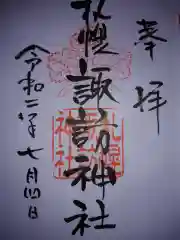 奉拝
札幌諏訪神社
令和二年七月四日